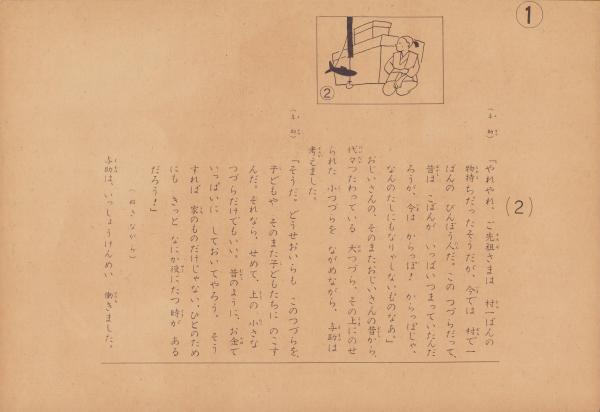 ①
②
(2)
(与助)
「やれやれ、ご先祖さまは 村一ばんの
物持ちだったそうだが、今では 村で一
ばんの びんぼうんだ。この つづらだって、
昔は こばんが いっぱいつまっていたんだ
ろうが、今は からっぽ! からっぽじゃ、
なんのたしにもなりゃしないものなあ。」
おじいさんの、そのまたおじいさんの昔から、
代々つたわっている 大つづら、その上にのせ
られた 小つづらを ながめながら、与助は
考えました。
(与助)
「そうだ。どうせおいらも このつづらを、
子どもや そのまた子どもたちに のこす
んだ。それなら、せめて、上の 小さな
つづらだけでもいい。昔のように、お金で
いっぱいに しておいてやろう。 そう
すれば 家のものだけじゃない、ひとのため
にも きっと なにか役にたつ 時が ある
だろう!」
(ぬきながら)
与助は、いっしょうけんめい 働きました。